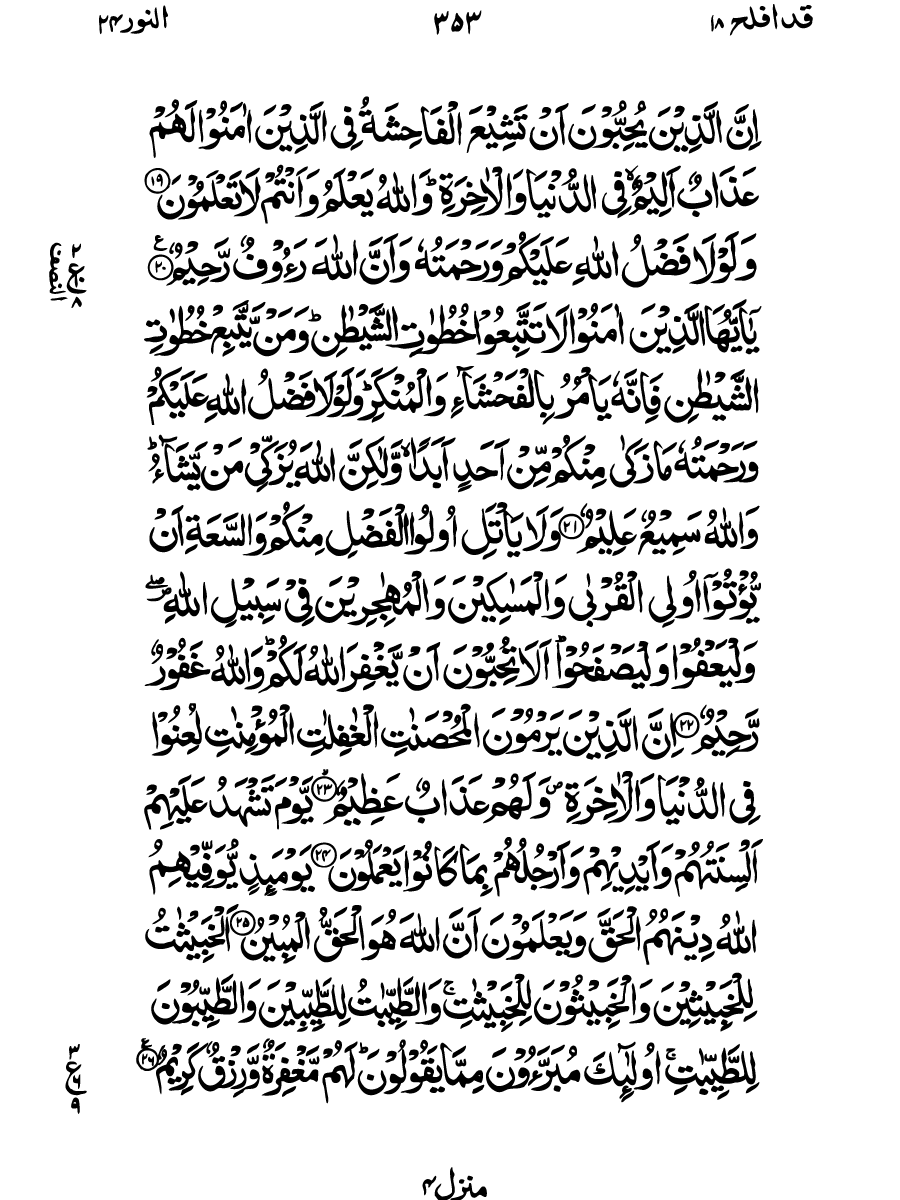 قد افلح ۱۸
۳۵۳
النور ۲۴
اِنَّ الَّذِيْنَ يُحِبُّوْنَ اَنْ تَشِيْعَ الْفَاحِشَةُ فِى الَّذِيْنَ اٰمَنُوْا لَهُمْ
عَذَابٌ اَلِيْمٌۙ فِى الدُّنْيَا وَالْاٰخِرَةِؕ وَاللّٰهُ يَعْلَمُ وَاَنْتُمْ لَا تَعْلَمُوْنَ ۱۹
وَلَوْلَا فَضْلُ اللّٰهِ عَلَيْكُمْ وَرَحْمَتُهٗ وَاَنَّ اللّٰهَ رَءُوْفٌ رَّحِيْمٌ ۲۰ ع
۲
ع
۸
النصف
يٰۤاَيُّهَا الَّذِيْنَ اٰمَنُوْا لَا تَتَّبِعُوْا خُطُوٰتِ الشَّيْطٰنِؕ وَمَنْ يَّتَّبِعْ خُطُوٰتِ
الشَّيْطٰنِ فَاِنَّهٗ يَاْمُرُ بِالْفَحْشَآءِ وَالْمُنْكَرِؕ وَلَوْلَا فَضْلُ اللّٰهِ عَلَيْكُمْ
وَرَحْمَتُهٗ مَا زَكٰى مِنْكُمْ مِّنْ اَحَدٍ اَبَدًاۙ وَّلٰكِنَّ اللّٰهَ يُزَكِّىْ مَنْ يَّشَآءُؕ
وَاللّٰهُ سَمِيْعٌ عَلِيْمٌ ۲۱ وَلَا يَاْتَلِ اُولُوا الْفَضْلِ مِنْكُمْ وَالسَّعَةِ اَنْ
يُّؤْتُوْۤا اُولِى الْقُرْبٰى وَالْمَسٰكِيْنَ وَالْمُهٰجِرِيْنَ فِىْ سَبِيْلِ اللّٰهِ ۖ
وَلْيَعْفُوْا وَلْيَصْفَحُوْاؕ اَلَا تُحِبُّوْنَ اَنْ يَّغْفِرَ اللّٰهُ لَكُمْؕ وَاللّٰهُ غَفُوْرٌ
رَّحِيْمٌ ۲۲ اِنَّ الَّذِيْنَ يَرْمُوْنَ الْمُحْصَنٰتِ الْغٰفِلٰتِ الْمُؤْمِنٰتِ لُعِنُوْا
فِى الدُّنْيَا وَالْاٰخِرَةِ ص وَلَهُمْ عَذَابٌ عَظِيْمٌ ۲۳ يَّوْمَ تَشْهَدُ عَلَيْهِمْ
اَلْسِنَتُهُمْ وَاَيْدِيْهِمْ وَاَرْجُلُهُمْ بِمَا كَانُوْا يَعْمَلُوْنَ ۲۴ يَوْمَئِذٍ يُّوَفِّيْهِمُ
اللّٰهُ دِيْنَهُمُ الْحَقَّ وَيَعْلَمُوْنَ اَنَّ اللّٰهَ هُوَ الْحَقُّ الْمُبِيْنُ ۲۵ اَلْخَبِيْثٰتُ
لِلْخَبِيْثِيْنَ وَالْخَبِيْثُوْنَ لِلْخَبِيْثٰتِۚ وَالطَّيِّبٰتُ لِلطَّيِّبِيْنَ وَالطَّيِّبُوْنَ
لِلطَّيِّبٰتِۚ اُولٰٓئِكَ مُبَرَّءُوْنَ مِمَّا يَقُوْلُوْنَؕ لَهُمْ مَّغْفِرَةٌ وَّرِزْقٌ كَرِيْمٌ ۲۶ ع
۳
ع ۶
۹
منزل ۴